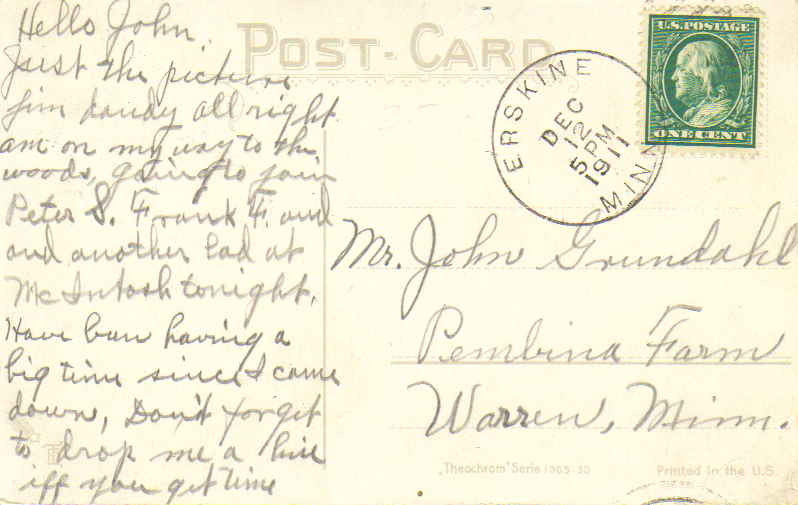 Hello John.
Just the picture
Jim dandy all right
am on my way to the
woods, going to join
Peter S. Frank F. and
and another lad at
McIntosh tonight.
Have bun having a
big time since I came
down, Don't forget
to drop me a line
iff you get time
POST-CARD
ERSKINE
DEC
12
5 PM
1911
MINN
U.S. POSTAGE
ONE CENT
Mr. John Grundahl
Pembina Farm
Warren, Minn.
„Theochrom" Serie 1965-30
Printed in the U.S.